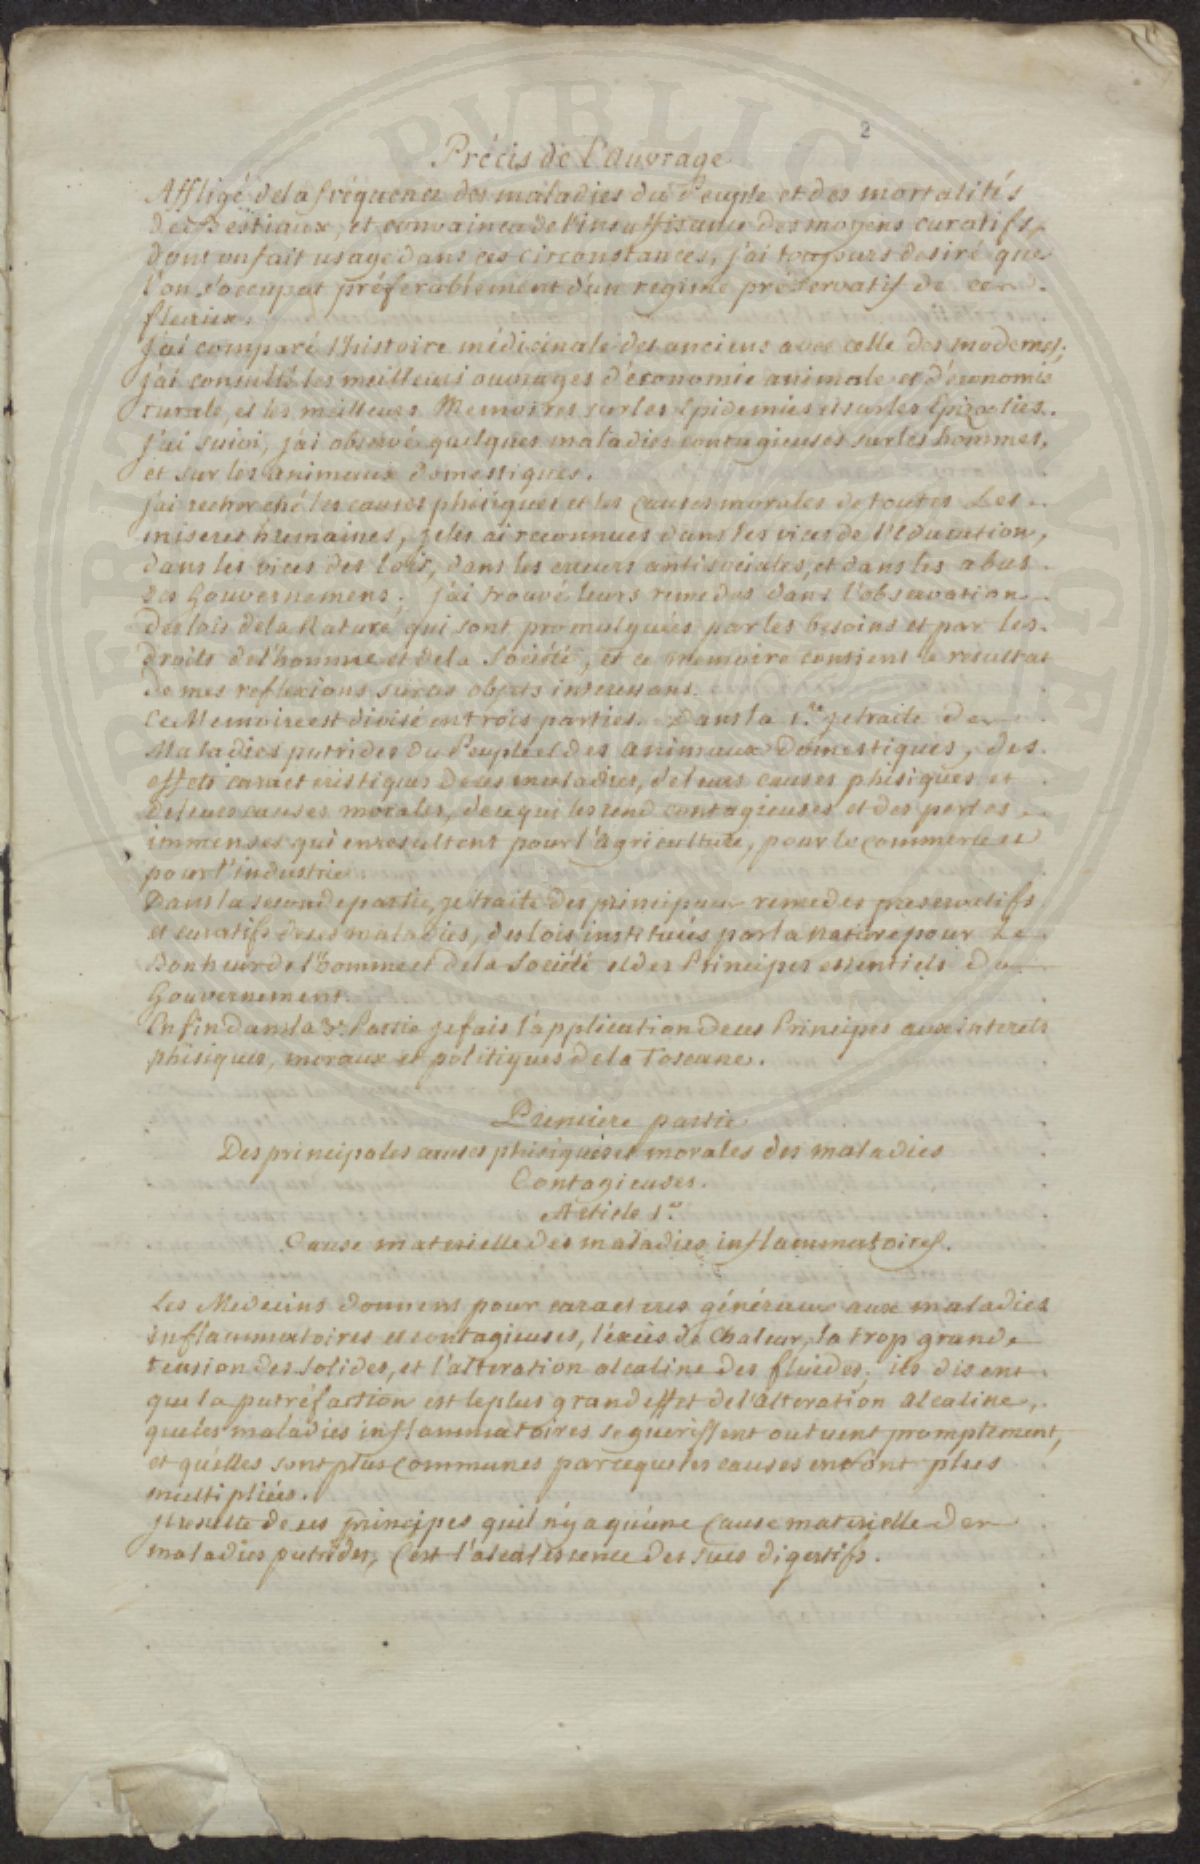 2
Précis de l'Auvrage
Affligé de la fréquence des maladies du Peuple et des mortalités
des Bestiaux, et convaincu de l'insuffisance des moyens curatifs,
dont on fait usage dans ces circonstances, j'ai toujours desiré que
l'on s'occupat préférablement d'un regime préservatif de ces
fleaux.
J'ai comparé l'histoire médicinale des anciens avec celle des modernes;
j'ai consulté les meilleurs ouvrages d'économie animale et d'économie
rurale, et les meilleurs Memoires sur les Epidemies et sur les Epizooties.
J'ai suivi, j'ai observé quelques maladies contagieuses sur les hommes,
et sur les animaux domestiques.
J'ai recherché les causes phisiques et les causes morales de toutes Les
miseres humaines, je les ai reconnues dans les vices de l'Education,
dans les vices des loix, dans les erreurs antisociales, et dans les abus
des Gouvernemens; j'ai trouvé leurs remedes dans l'observation
des lois de la Nature qui sont promulguées par les besoins et par les
droits de l'homme et de la Société, et ce memoire contient le resultat
de mes reflexions sur ces objets interessans.
Ce Memoire est divisé en trois parties. Dans la 1.re je traite des
Maladies putrides du Peuple et des animaux Domestiques, des
effets caracteristiques de ces maladies, de leurs causes phisiques et
de leurs causes morales, de ce qui les rend contagieuses et des pertes
immenses qui en resultent pour l'agriculture, pour le commerce et
pour l'industrie.
Dans la seconde partie, je traite des principaux remedes preservatifs
et curatifs de ces maladies, des lois instituées par la nature pour Le
Bonheur de l'homme et de la Société et des Principes essentiels du
Gouvernement.
Enfin dans la 3.e Partie je fais l'application de ces Principes aux interets
phisiques, moraux et politiques de la Toscane.
Premiere partie
Des principales causes phisiques et morales des maladies
Contagieuses.
Article 1.er
Cause materielle des maladies inflammatoires.
Les Medecins donnent pour caracteres généraux aux maladies
inflammatoires et contagieuses, l'éxcès de Chaleur, la trop grande
tension des solides, et l'alteration alcaline des fluides; ils disent
que la putréfaction est le plus grand effet de l'alteration alcaline,
que les maladies inflammatoires se guerissent ou tuent promptement,
et qu'elles sont plus communes parceque les causes en sont plus
multipliées.
Il resulte de ces principes qu'il n'y a qu'une Cause materielle des
maladies putrides, C'est l'alcalescence des sucs digestifs.